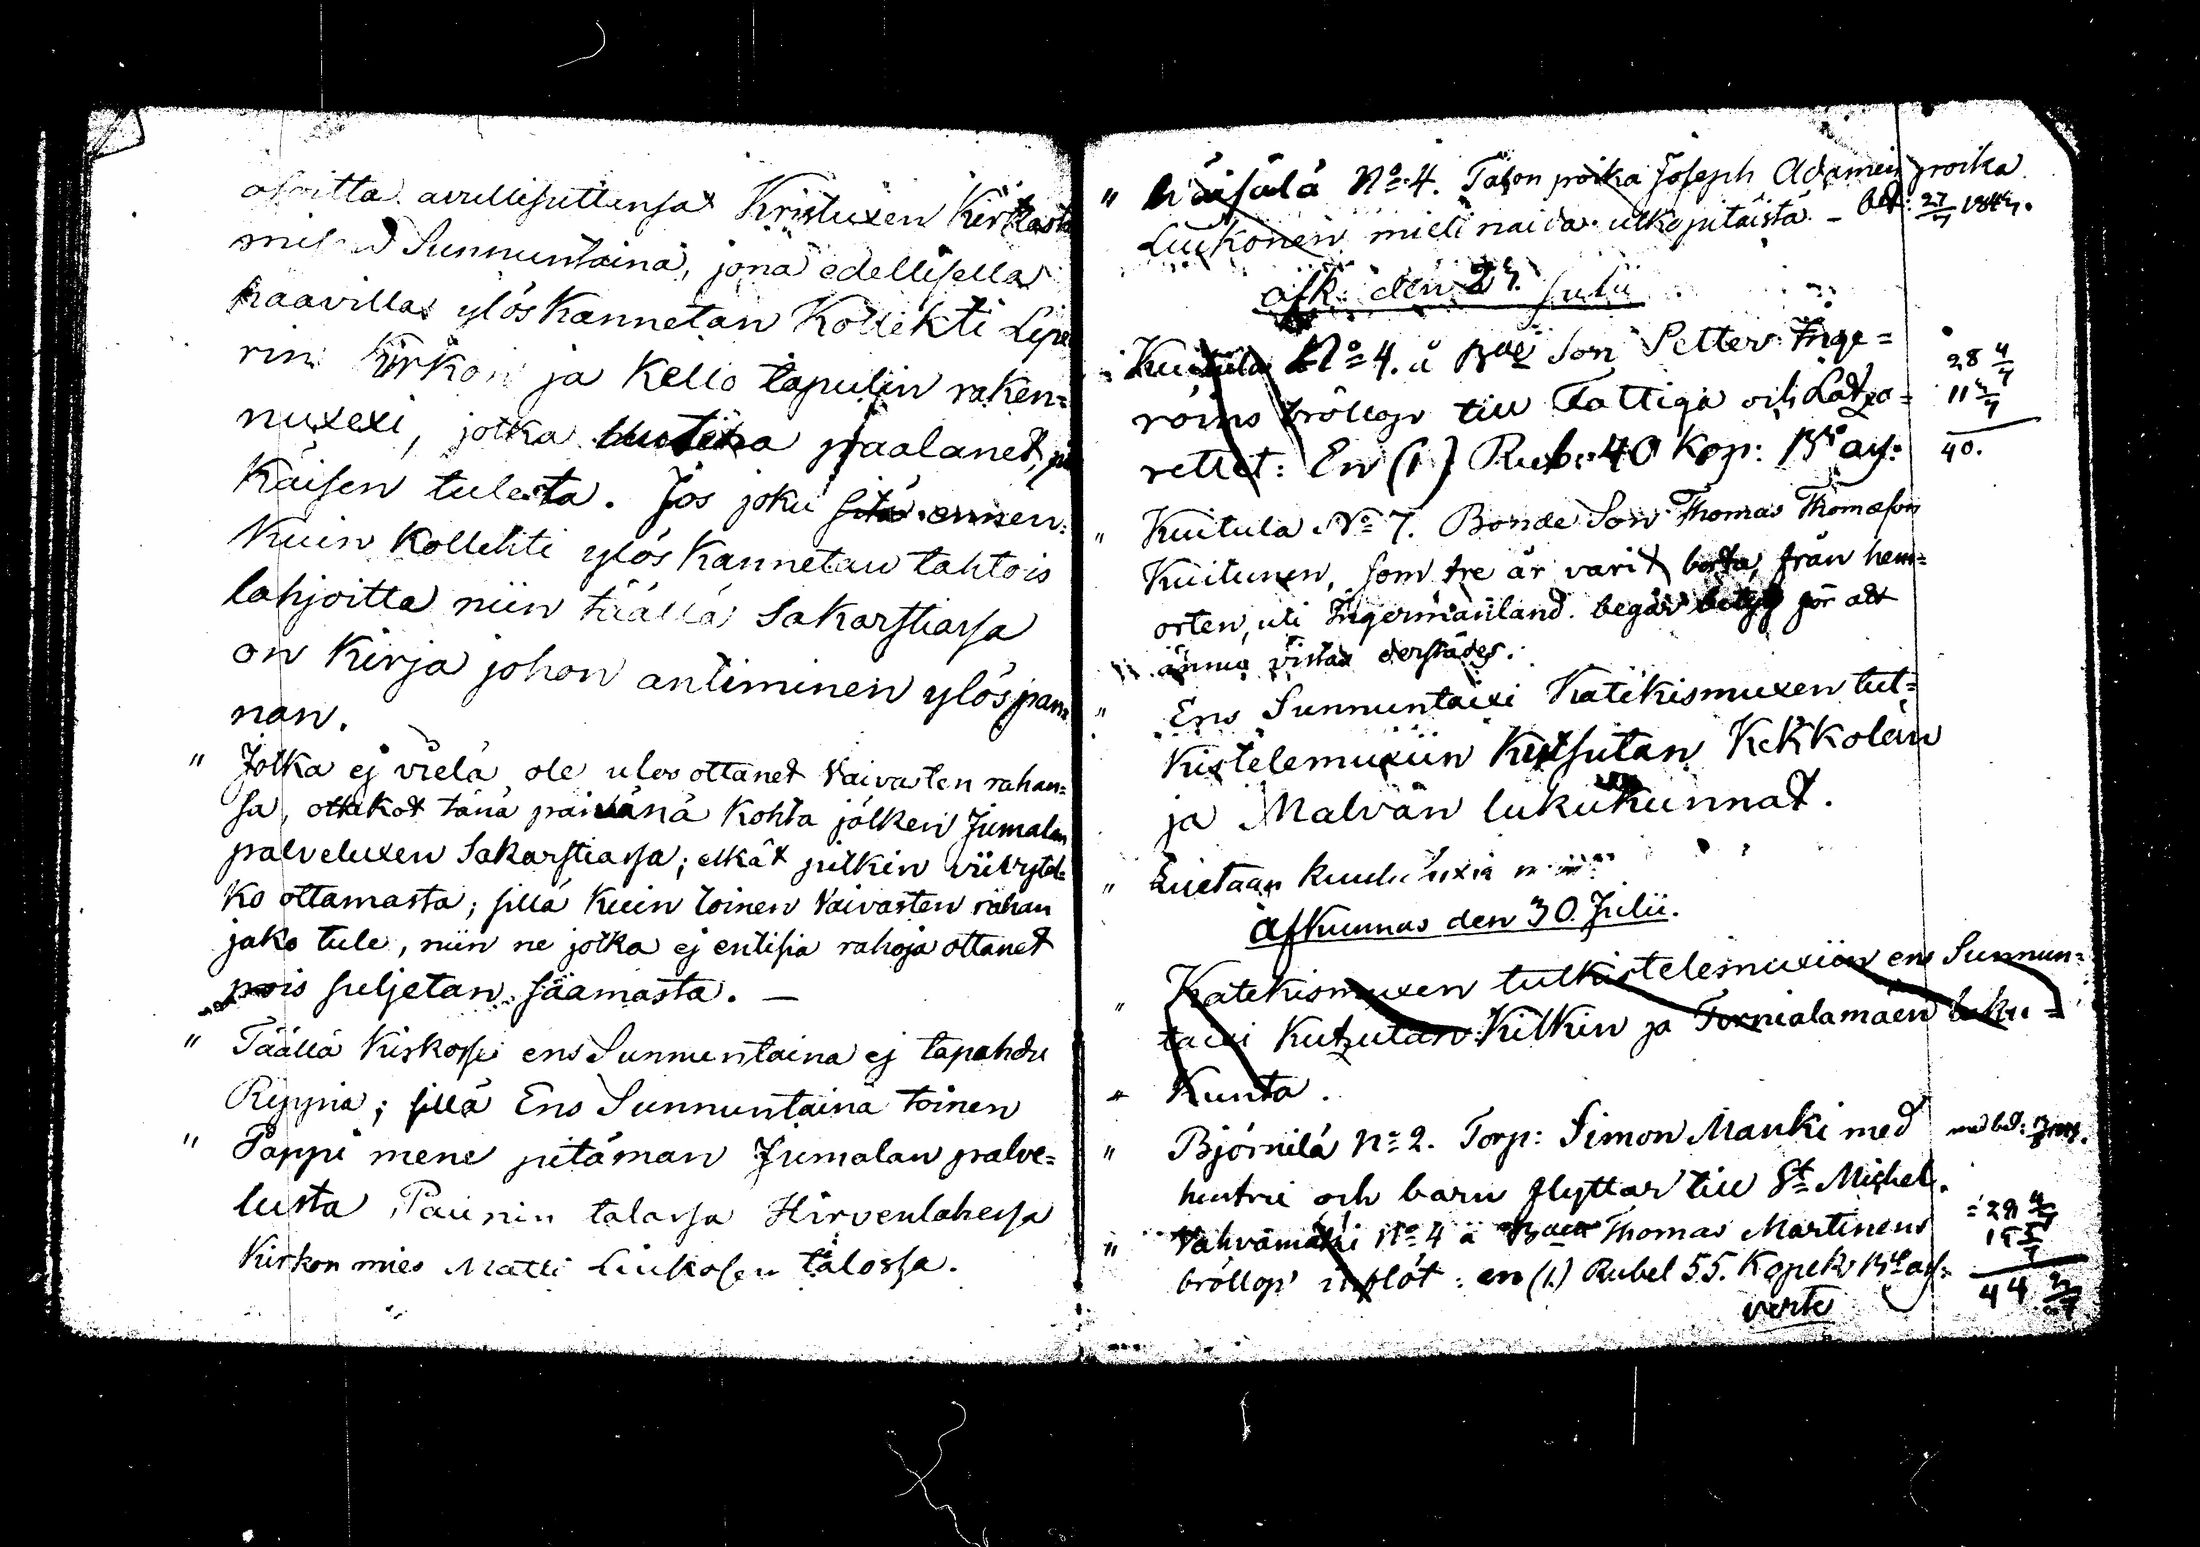 osoitta avullisuttensa Kristuxen Kirkasta
misen Sunnuntaina, jona edellisellä
haavilla ylöskannetan Kollekti Lipe
rin Kirkon ja Kello tapulin raken=
nuxexi, jotka paalanet, pi
käisen tulesta. Jos joku sitä ennen
kuin Kollekti ylöskannetan tahtois
lahjoitta niin täällä Sakarstiassa
on Kirja johon antiminen ylöspann
nan.
" Jotka ej vielä ole ulos ottanet Vaivasten rahan=
sa, ottakot tänä päivänä kohta jälken Jumalan
palveluxen Sakarstiassa; elkät pitkin viivytel=
kö ottamasta; sillä kuin toinen Vaivasten rahan
jako tule, niin ne jotka ej entisiä rahoja ottanet
pois suljetan säamasta. —
" Täällä Kirkossa ens Sunnuntaina ej tapahdu
Rippiä; sillä Ens Sunnuntaina toinen
" Pappi mene pitämän Jumalan palve=
lusta Paunin talossa Hirvenlahessa
Kirkon mies Matti Liukosen talossa.
" No 4. Talon poika Joseph Adamin poika
Liukonen mieli naida ulkopitäistä - bet: 27/7 1844.
afk: den 27. Julii
Kuitula No 4. å Bde Son Petter Inge=
röins bröllop till Fattiga och Latza= 28 4/7
rettet: En (1) Rub. 40 Kop: Bco ass: 11 3/7
40.
" Kuitula No 7. Bonde Son Thomas Thomasson
Kuitunen, som tre år varit borta från hem=
orten, uti Ingermanland begär betyg för att
ännu vistas derstädes.
" Ens Sunnuntaixi Katekismuxen tut=
kistelemuxiin kutsutan Kekkolan
ja Malvan lukukunnat.
" Luetaan kuulutuxia
afkunnas den 30. Julii.
" Katekismuxen tutkistelemuxiin ens Sunnun=
taixi Kutzutan Kitkin ja Tornialamäen luku=
" Kunta.
" Björnilä No 2. Torp: Simon Manki med
hustru och barn flyttar till St Michel.
" Vahvamäki No 4 å Thomas Martinens = 28 4/7
bröllop influt: en (1.) Rubel 55. Kopek Bco ass= 15 5/7
verte 44 2/7